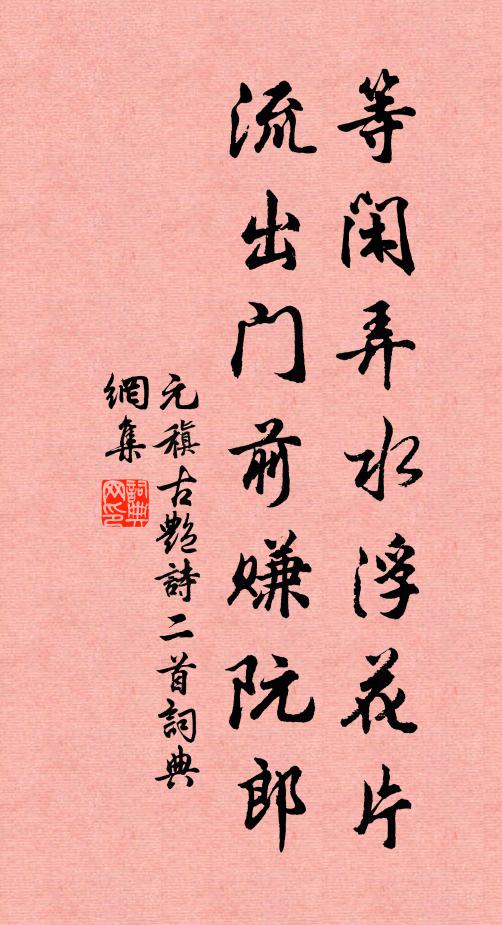 等閑弄水浮花片
流出门前赚阮郎
元稹古艷詩二首詞典
網集
詞典
网印